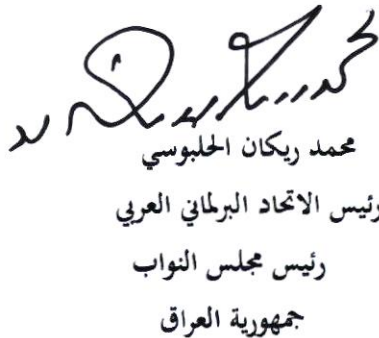 محمد ريكان الحلبوسي
رئيس الاتحاد البرلماني العربي
رئيس مجلس النواب
جمهورية العراق